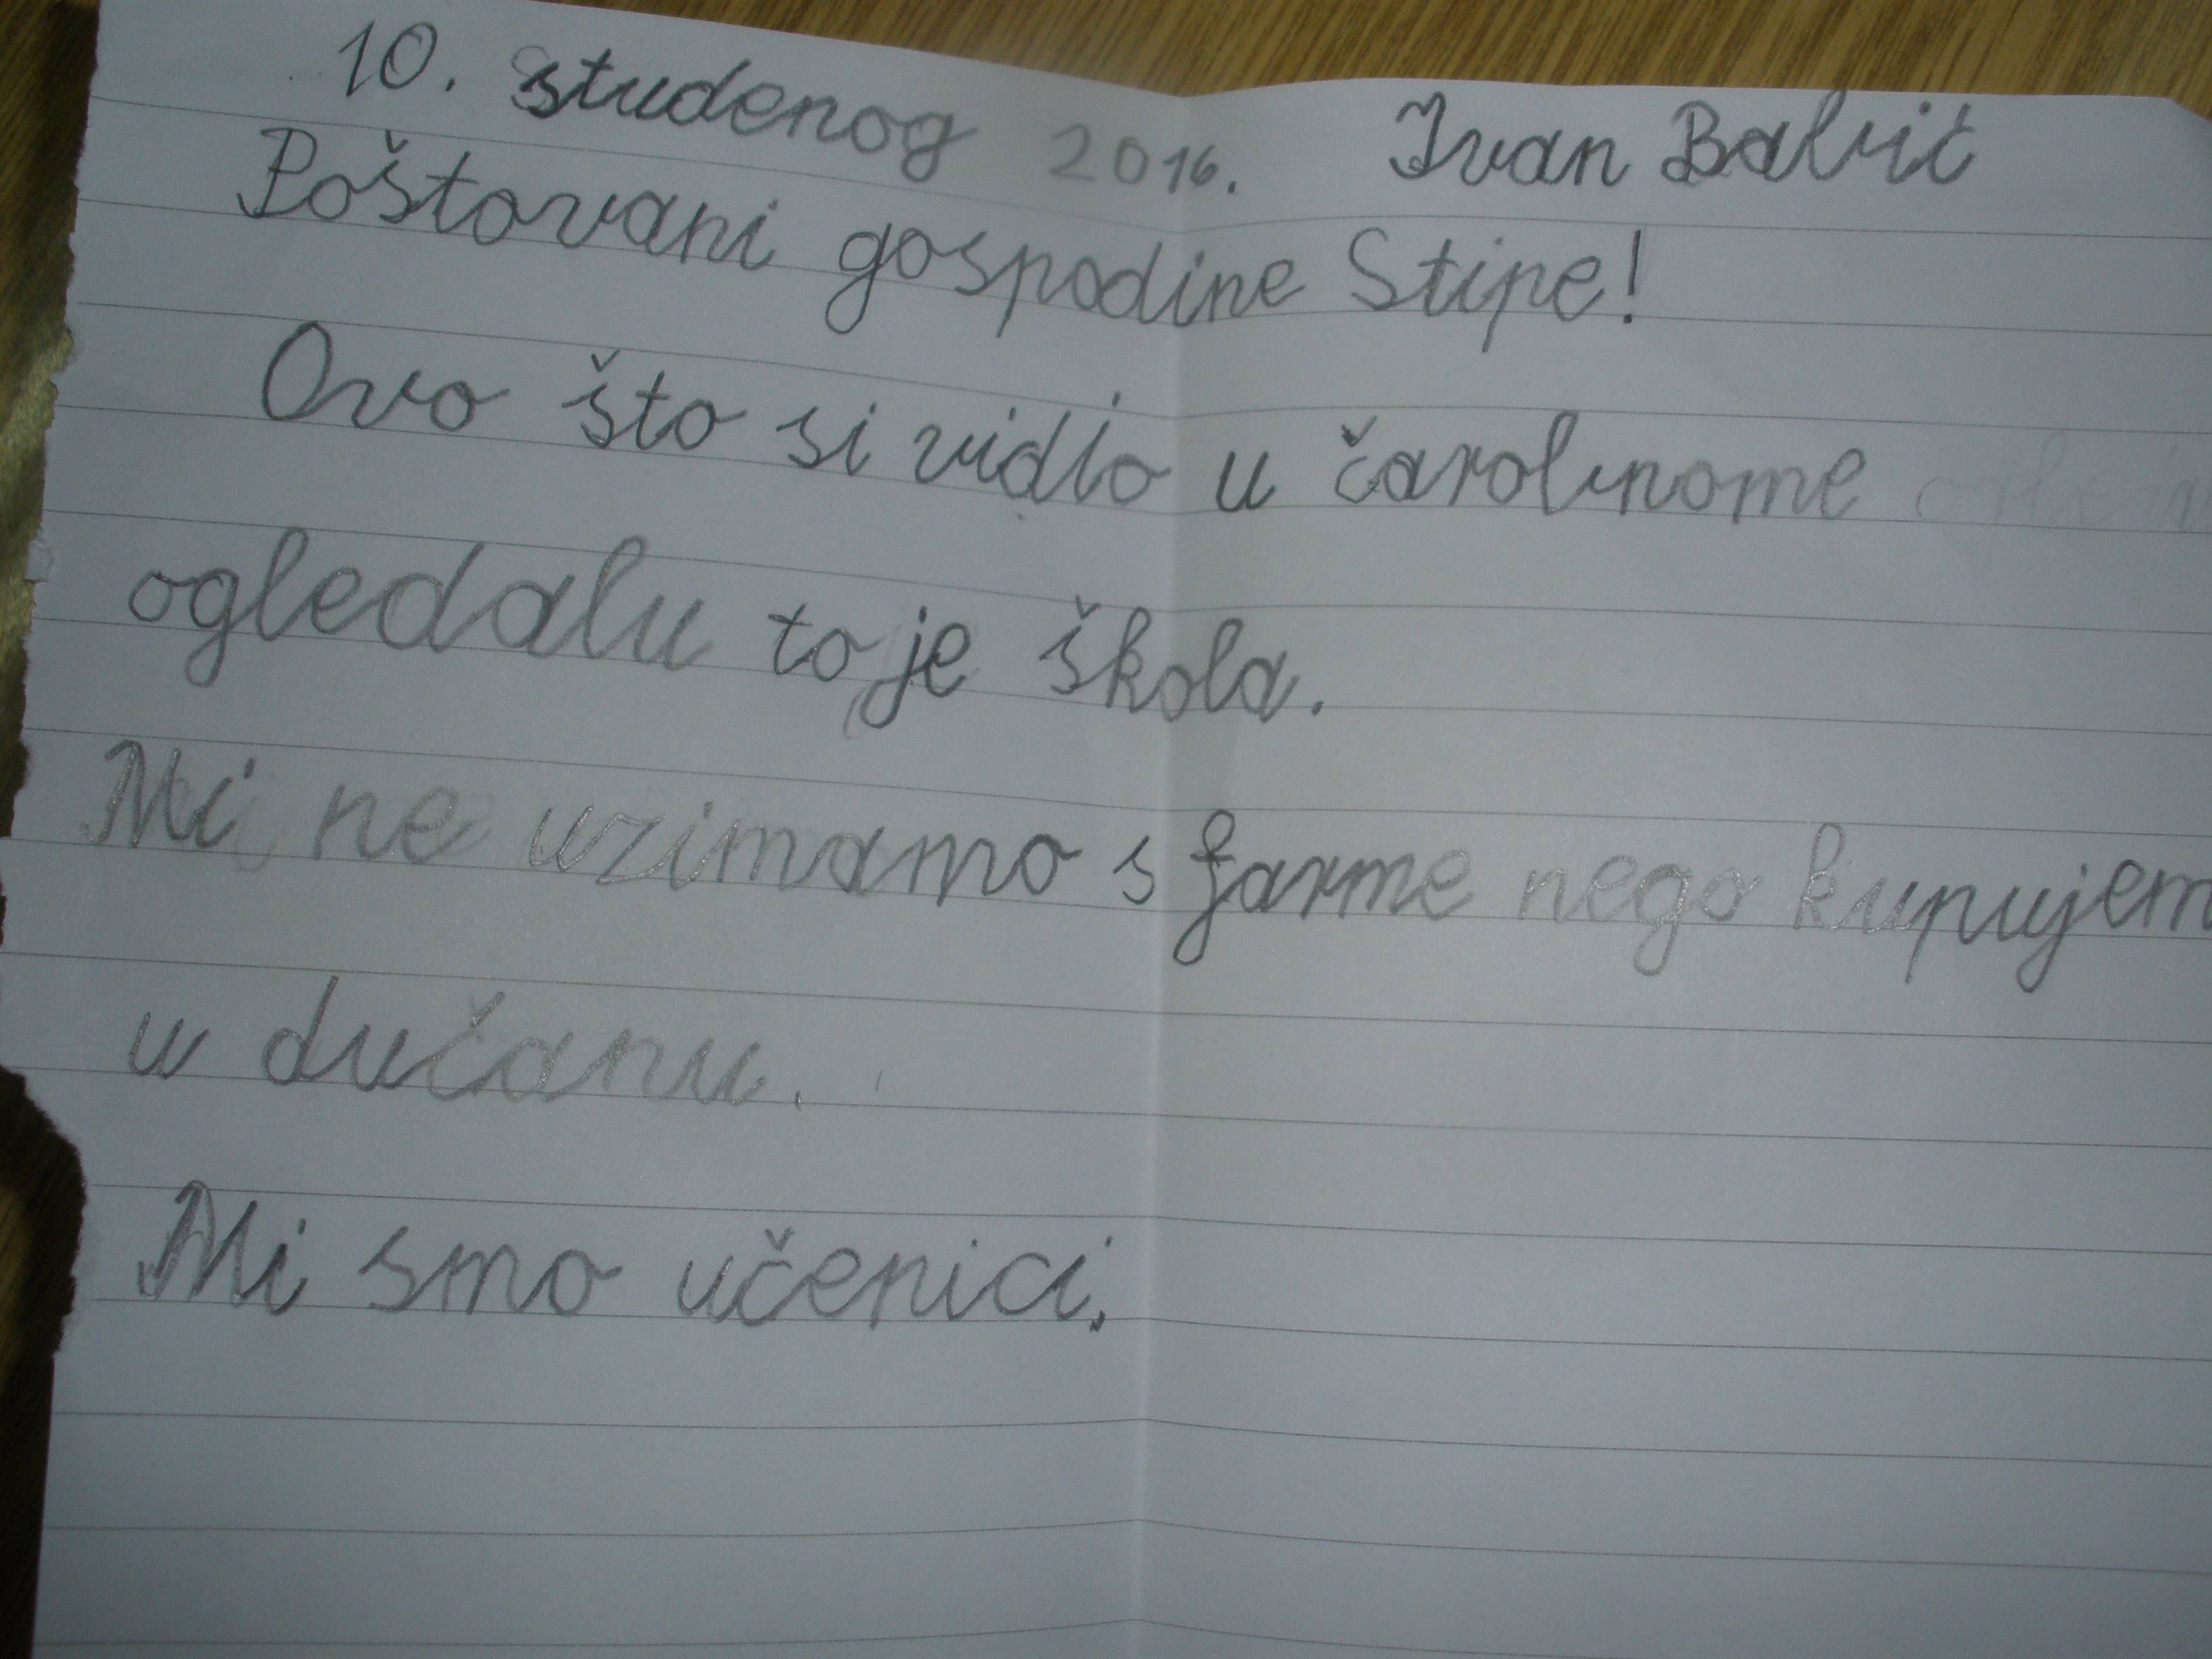 10. studenog 2016. Ivan Babić
Poštovani gospodine Stipe!
Ovo što si vidio u čarobnome
ogledalu to je škola.
Mi ne uzimamo s farme nego kupujem
u dućanu.
Mi smo učenici.